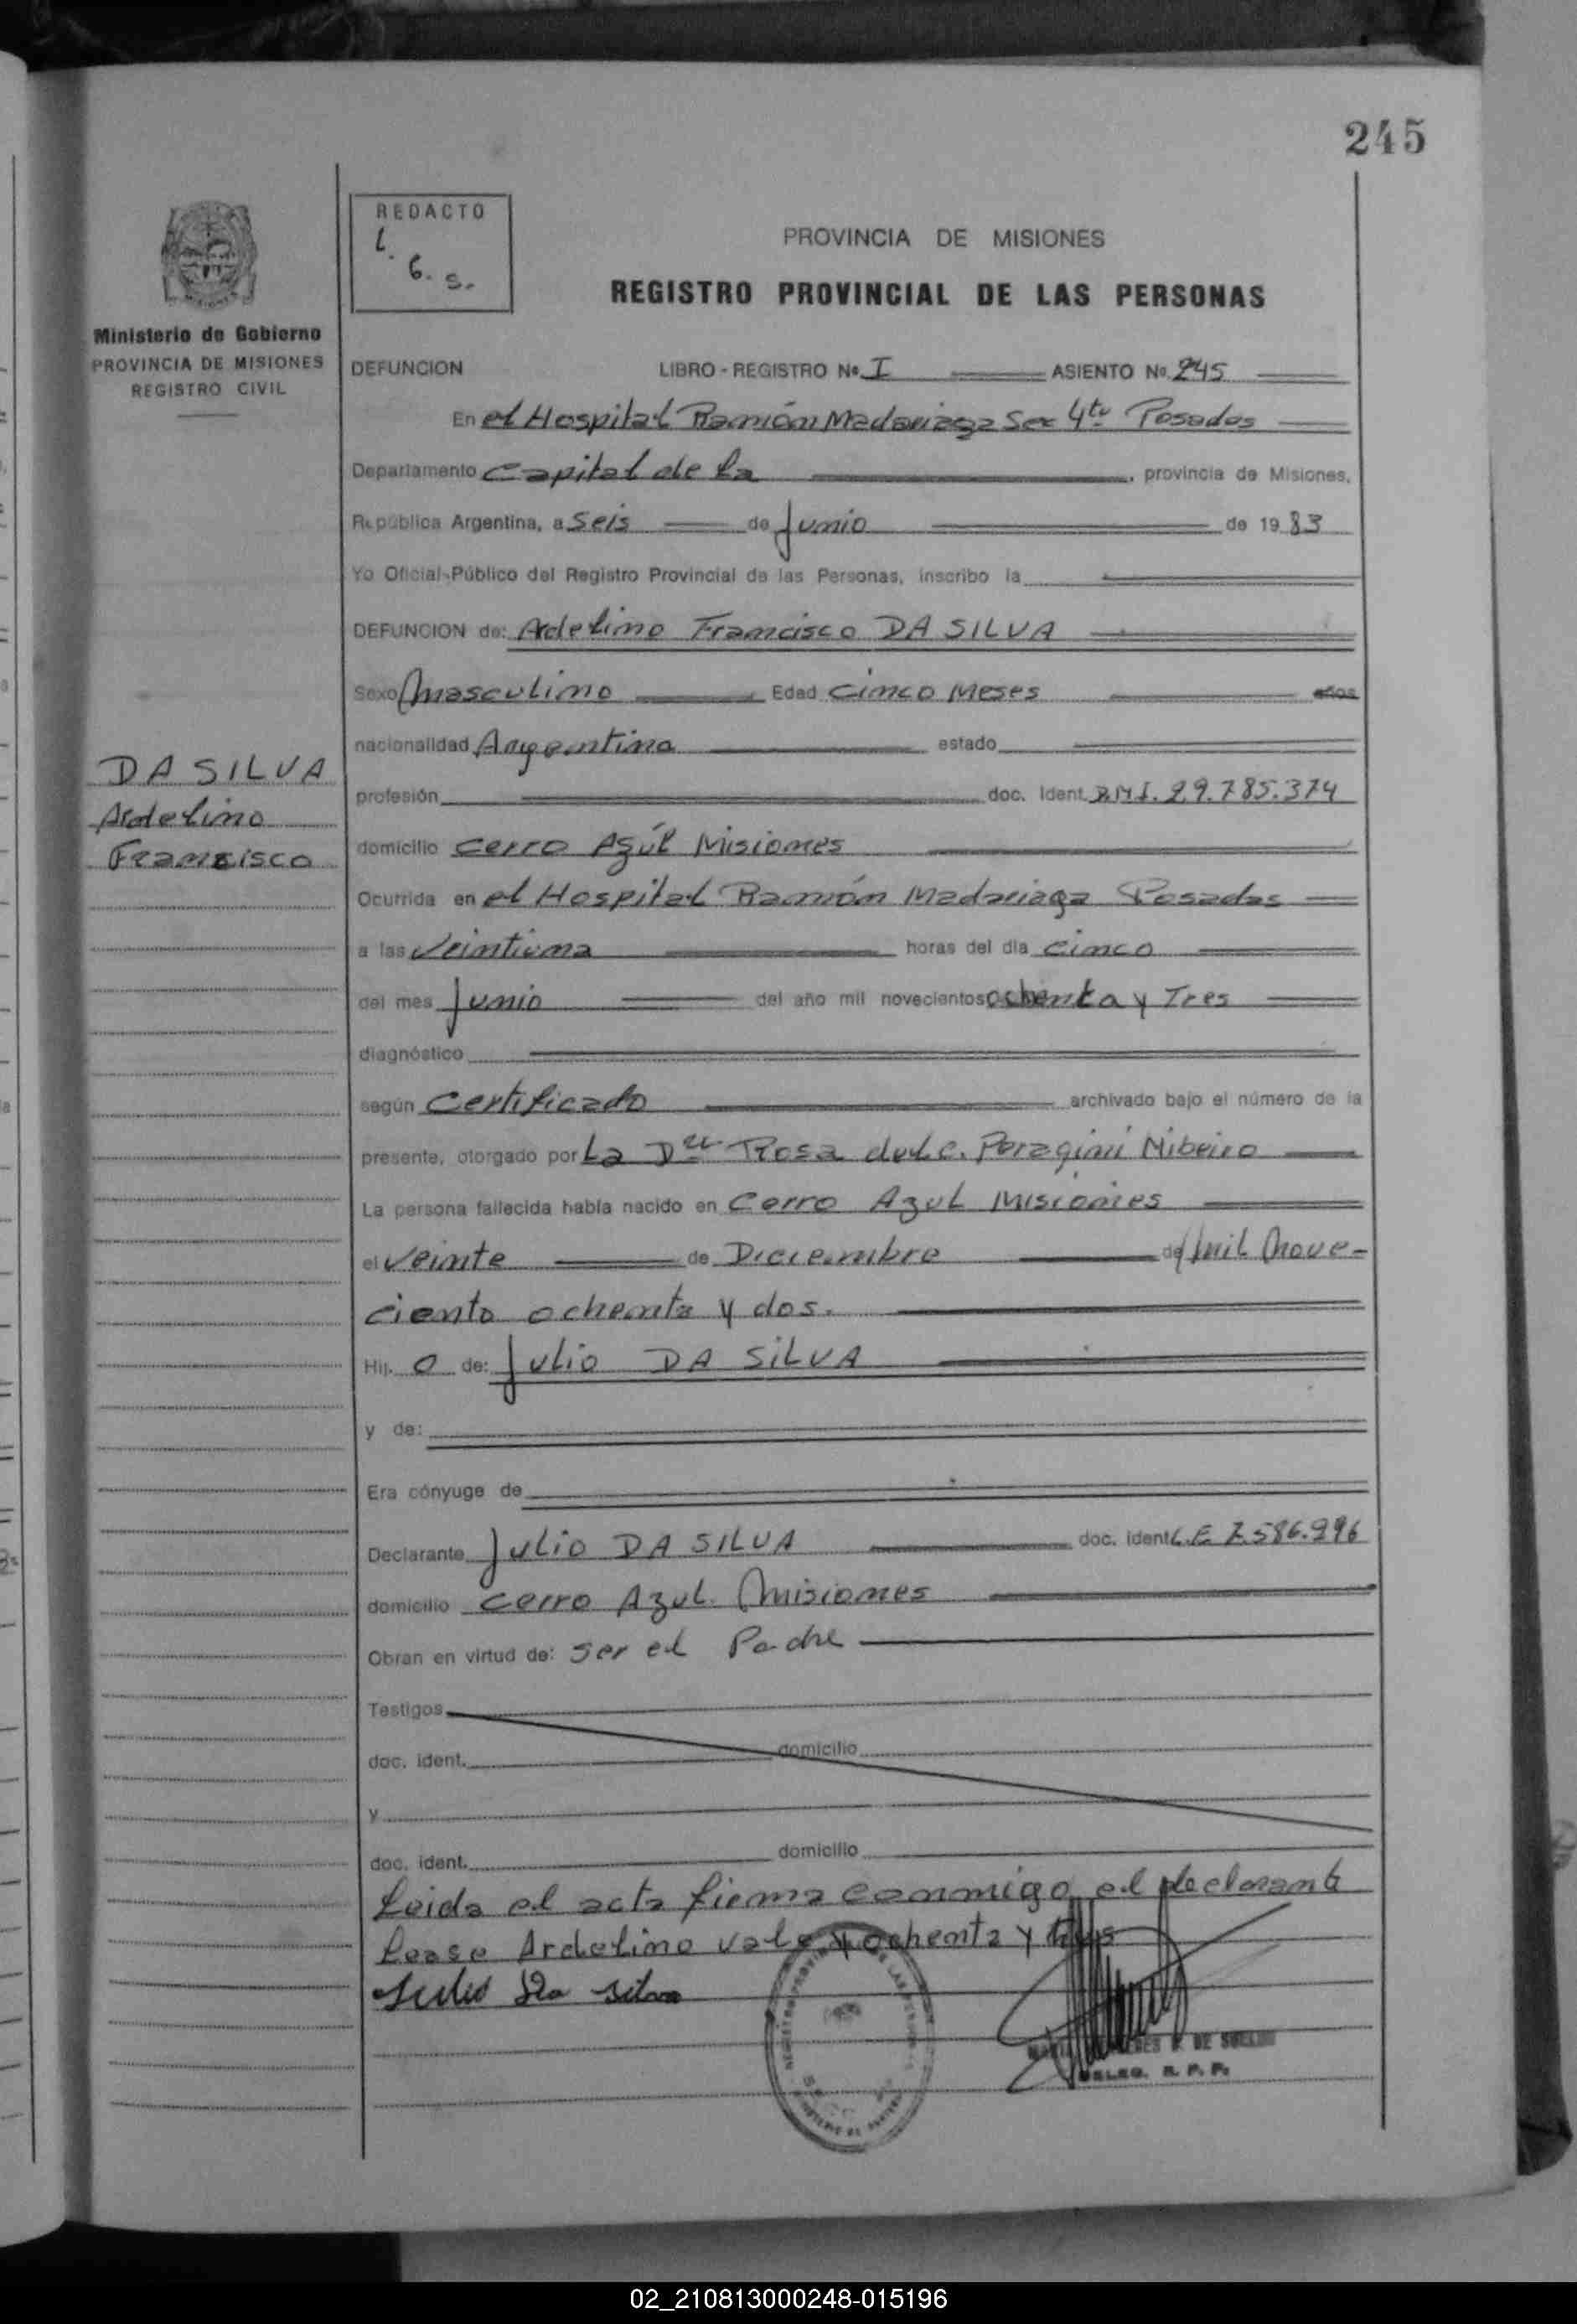 245
REDACTO
PROVINCIA DE MISIONES
REGISTRO PROVINCIAL DE LAS PERSONAS
Ministerio de Gobierno
PROVINCIA DE MISIONES
REGISTRO CIVIL
DEFUNCION LIBRO - REGISTRO No I ASIENTO No 245
En el Hospital Ramón Madariaga Sec 4ta Posadas
Departamento Capital de la , provincia de Misiones,
República Argentina, a Seis de Junio de 1983
Yo Oficial Público del Registro Provincial de las Personas, inscribo la
DEFUNCION de: Ardelino Francisco DA SILVA
Sexo Masculino Edad Cinco Meses años
nacionalidad Argentina estado
DA SILVA
Ardelino
Francisco
profesión doc. Ident. D.N.I. 29.785.374
domicilio Cerro Azúl Misiones
Ocurrida en el Hospital Ramón Madariaga Posadas
a las Veintiuna horas del día Cinco
del mes Junio del año mil novecientos ochenta y Tres
diagnóstico
según Certificado archivado bajo el número de la
presente, otorgado por La Rosa
La persona fallecida había nacido en Cerro Azul Misiones
el Veinte de Diciembre de Mil Nove-
ciento ochenta y dos.
Hij. o de: Julio DA SILVA
y de:
Era cónyuge de
Declarante Julio DA SILVA doc. ident L.E 7.586.996
domicilio Cerro Azul. Misiones
Obran en virtud de: Ser el Padre
Testigos
doc. ident. domicilio
y
doc. ident. domicilio
Leida el acta firma conmigo el declarante
Lease Ardelino vale ochenta y tres
Julio Da Silva
DE
DELEG. R. P. P.
02_210813000248-015196